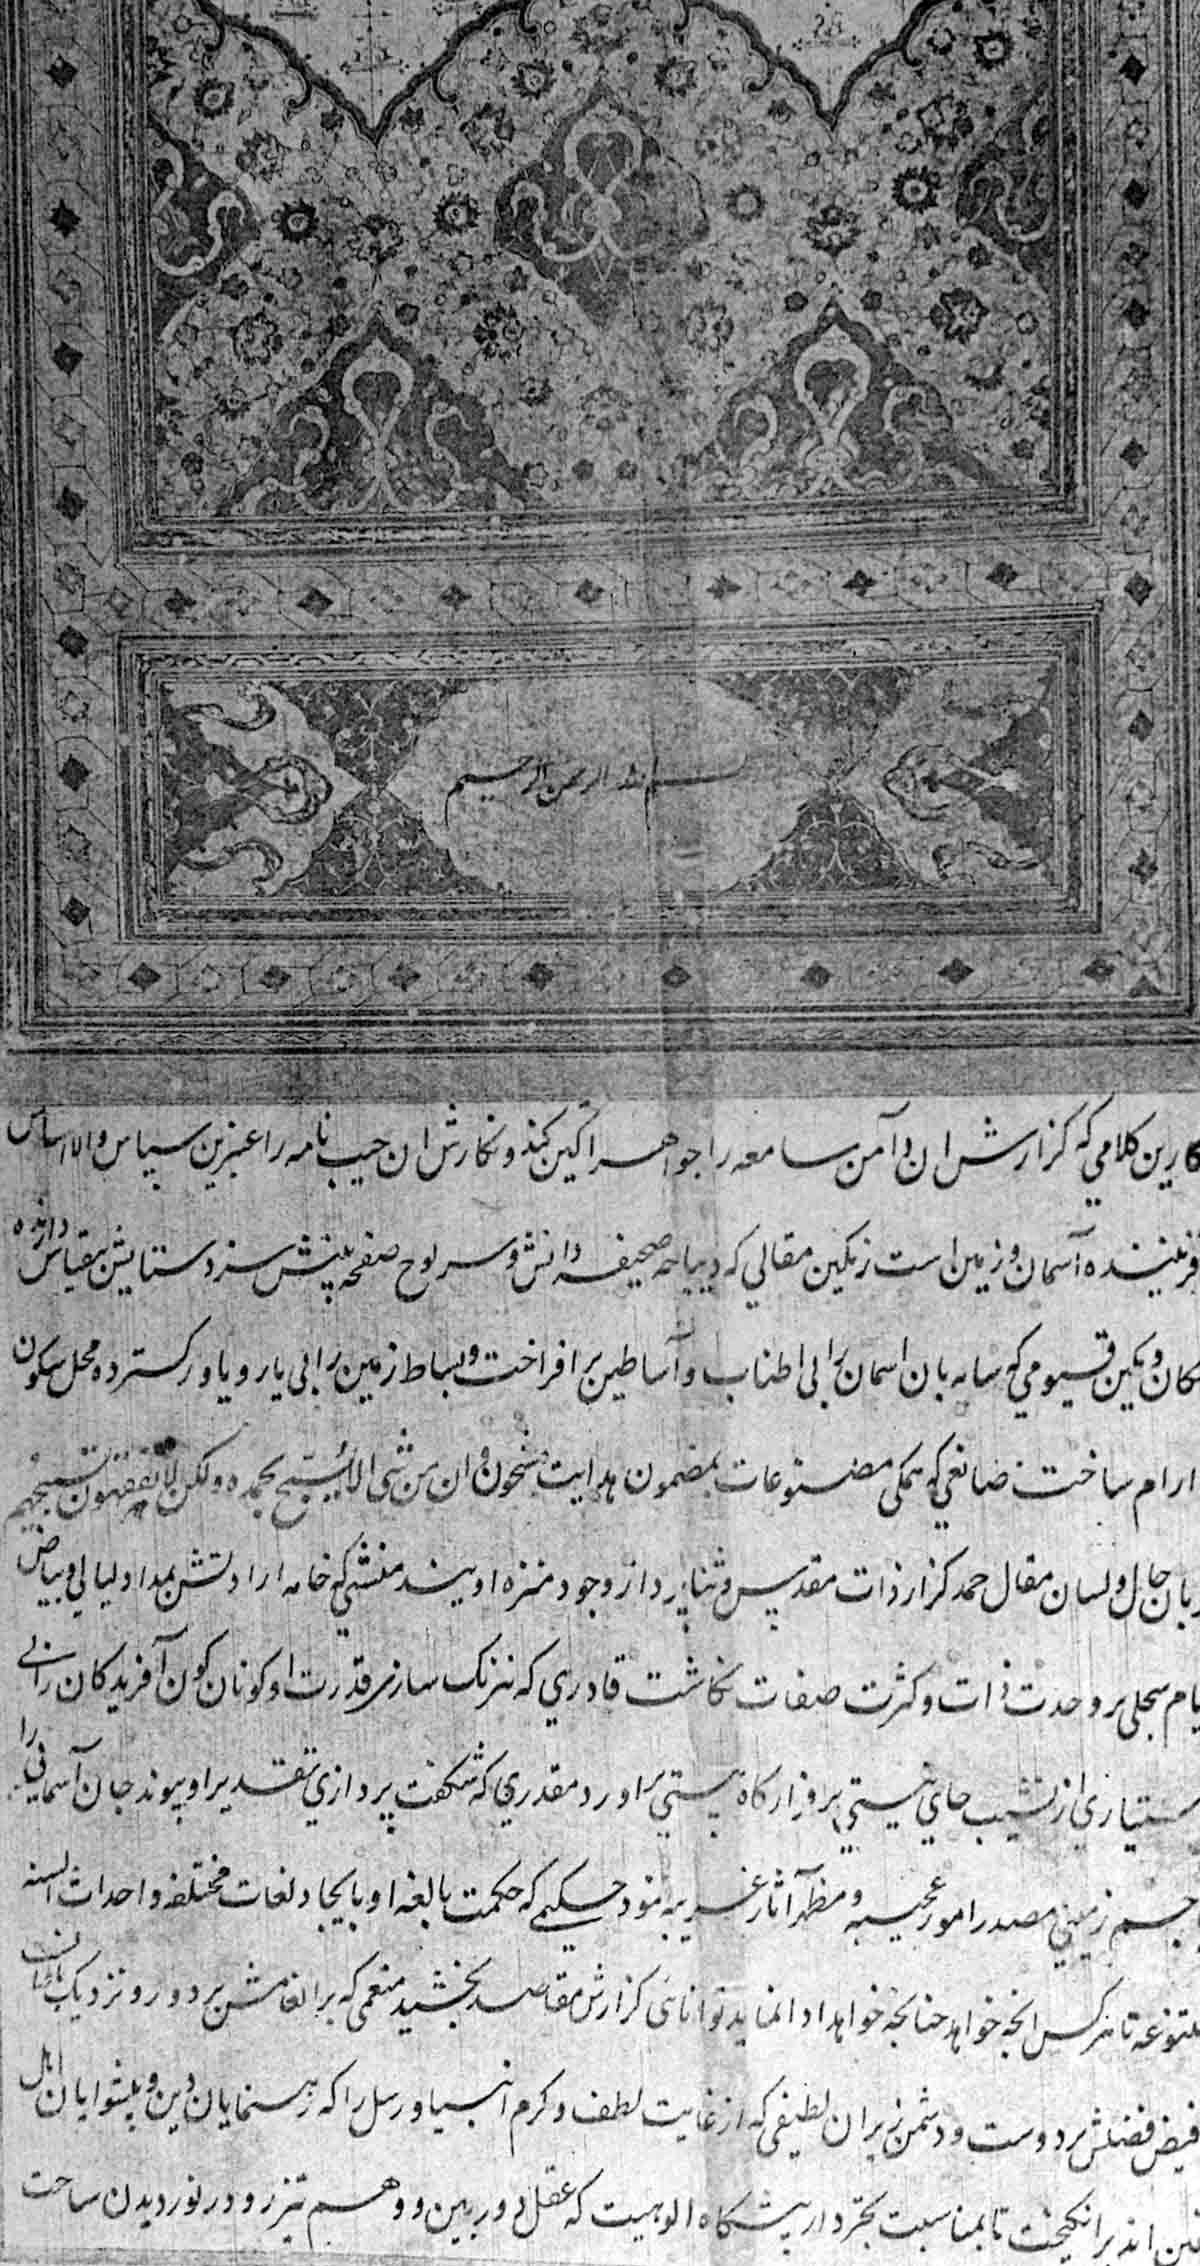 بسم الله الرحمن الرحیم
کلامی که گزارش ان دامن سامعه را جواهر آگین کند و نگارش ان جیب نامه را عنبرین سپاس والا اساس
آسمان و زمین است رنگین مقالی که دیباچه صحیفه دانش و سر لوح صفحه بینش سزد ستایش بیقیاس دارنده
مکان و مکین قیومی که سایه بان اسمان را بی اطناب و آساطین بر افراخت و بساط زمین را بی یار و یاور گسترده محل سکون
ارام ساخت صانعی که همگی مصنوعات بمضمون هدایت مشحون و ان من شی الا یسبح بحمده ولکن لا تفقهون تسبیحهم
حال و لسان مقال حمد گزار ذات مقدس و ثنا پرداز وجود منزه اویند منشی که خامه ارادتش بمداد لیالی و بیاض
سجلی بر وحدت ذات و کثرت صفات نگاشت قادری که نیرنگ سازی قدرت او کوناکون آفریدگان را بی
از نشیب جای نیستی بر فراز گاه هستی براورد مقدری که شگفت پردازی تقدیر او پیوند جان آسمانی را
جسم زمینی مصدر امور عجیبه و مظهر آثار غریبه نمود حکیمی که حکمت بالغه او بایجاد لغات مختلفه و احداث السنه
متنوعه تا هر کس انچه خواهد چنانچه خواهد ادا نماید توانائی گزارش مقاصد بخشید منعمی که بر انعامش بر دور و نزدیک
فیض فضلش بر دوست و دشمن ریزان لطیفی که از غایت لطف و کرم انبیا و رسل را که رهنمایان دین و پیشوایان اهل
اند برانگیخت تا بمناسبت تجرد از پیشگاه الوهیت که عقل دوربین و وهم تیز رو در نوردیدن ساحت